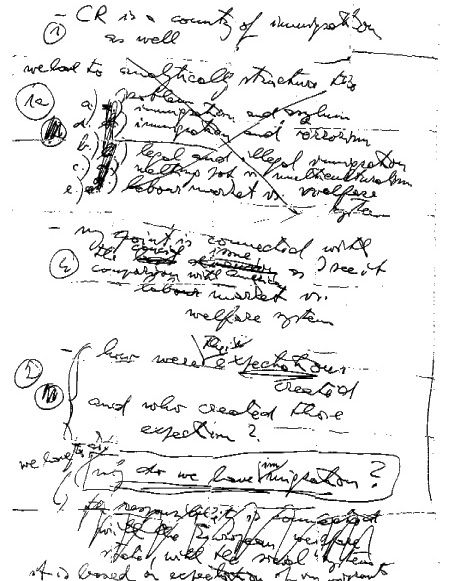 - CR is a country of immigration
1 as well
we had to analytically structure this
problem
1a a) immigration and asylum
d) immigration and terrorism
b) legal and illegal immigration
c) melting pot vs multiculturalism
e) labour market vs. welfare
system
- my point is connected with
the as I see it
comparison with America
labour market vs.
welfare system
these
2 - how were expectations
created
and who created those
expection?
we have to
why do we have immigration?
the is connected
with the European welfare
state, with the social system
it is based on expectation of